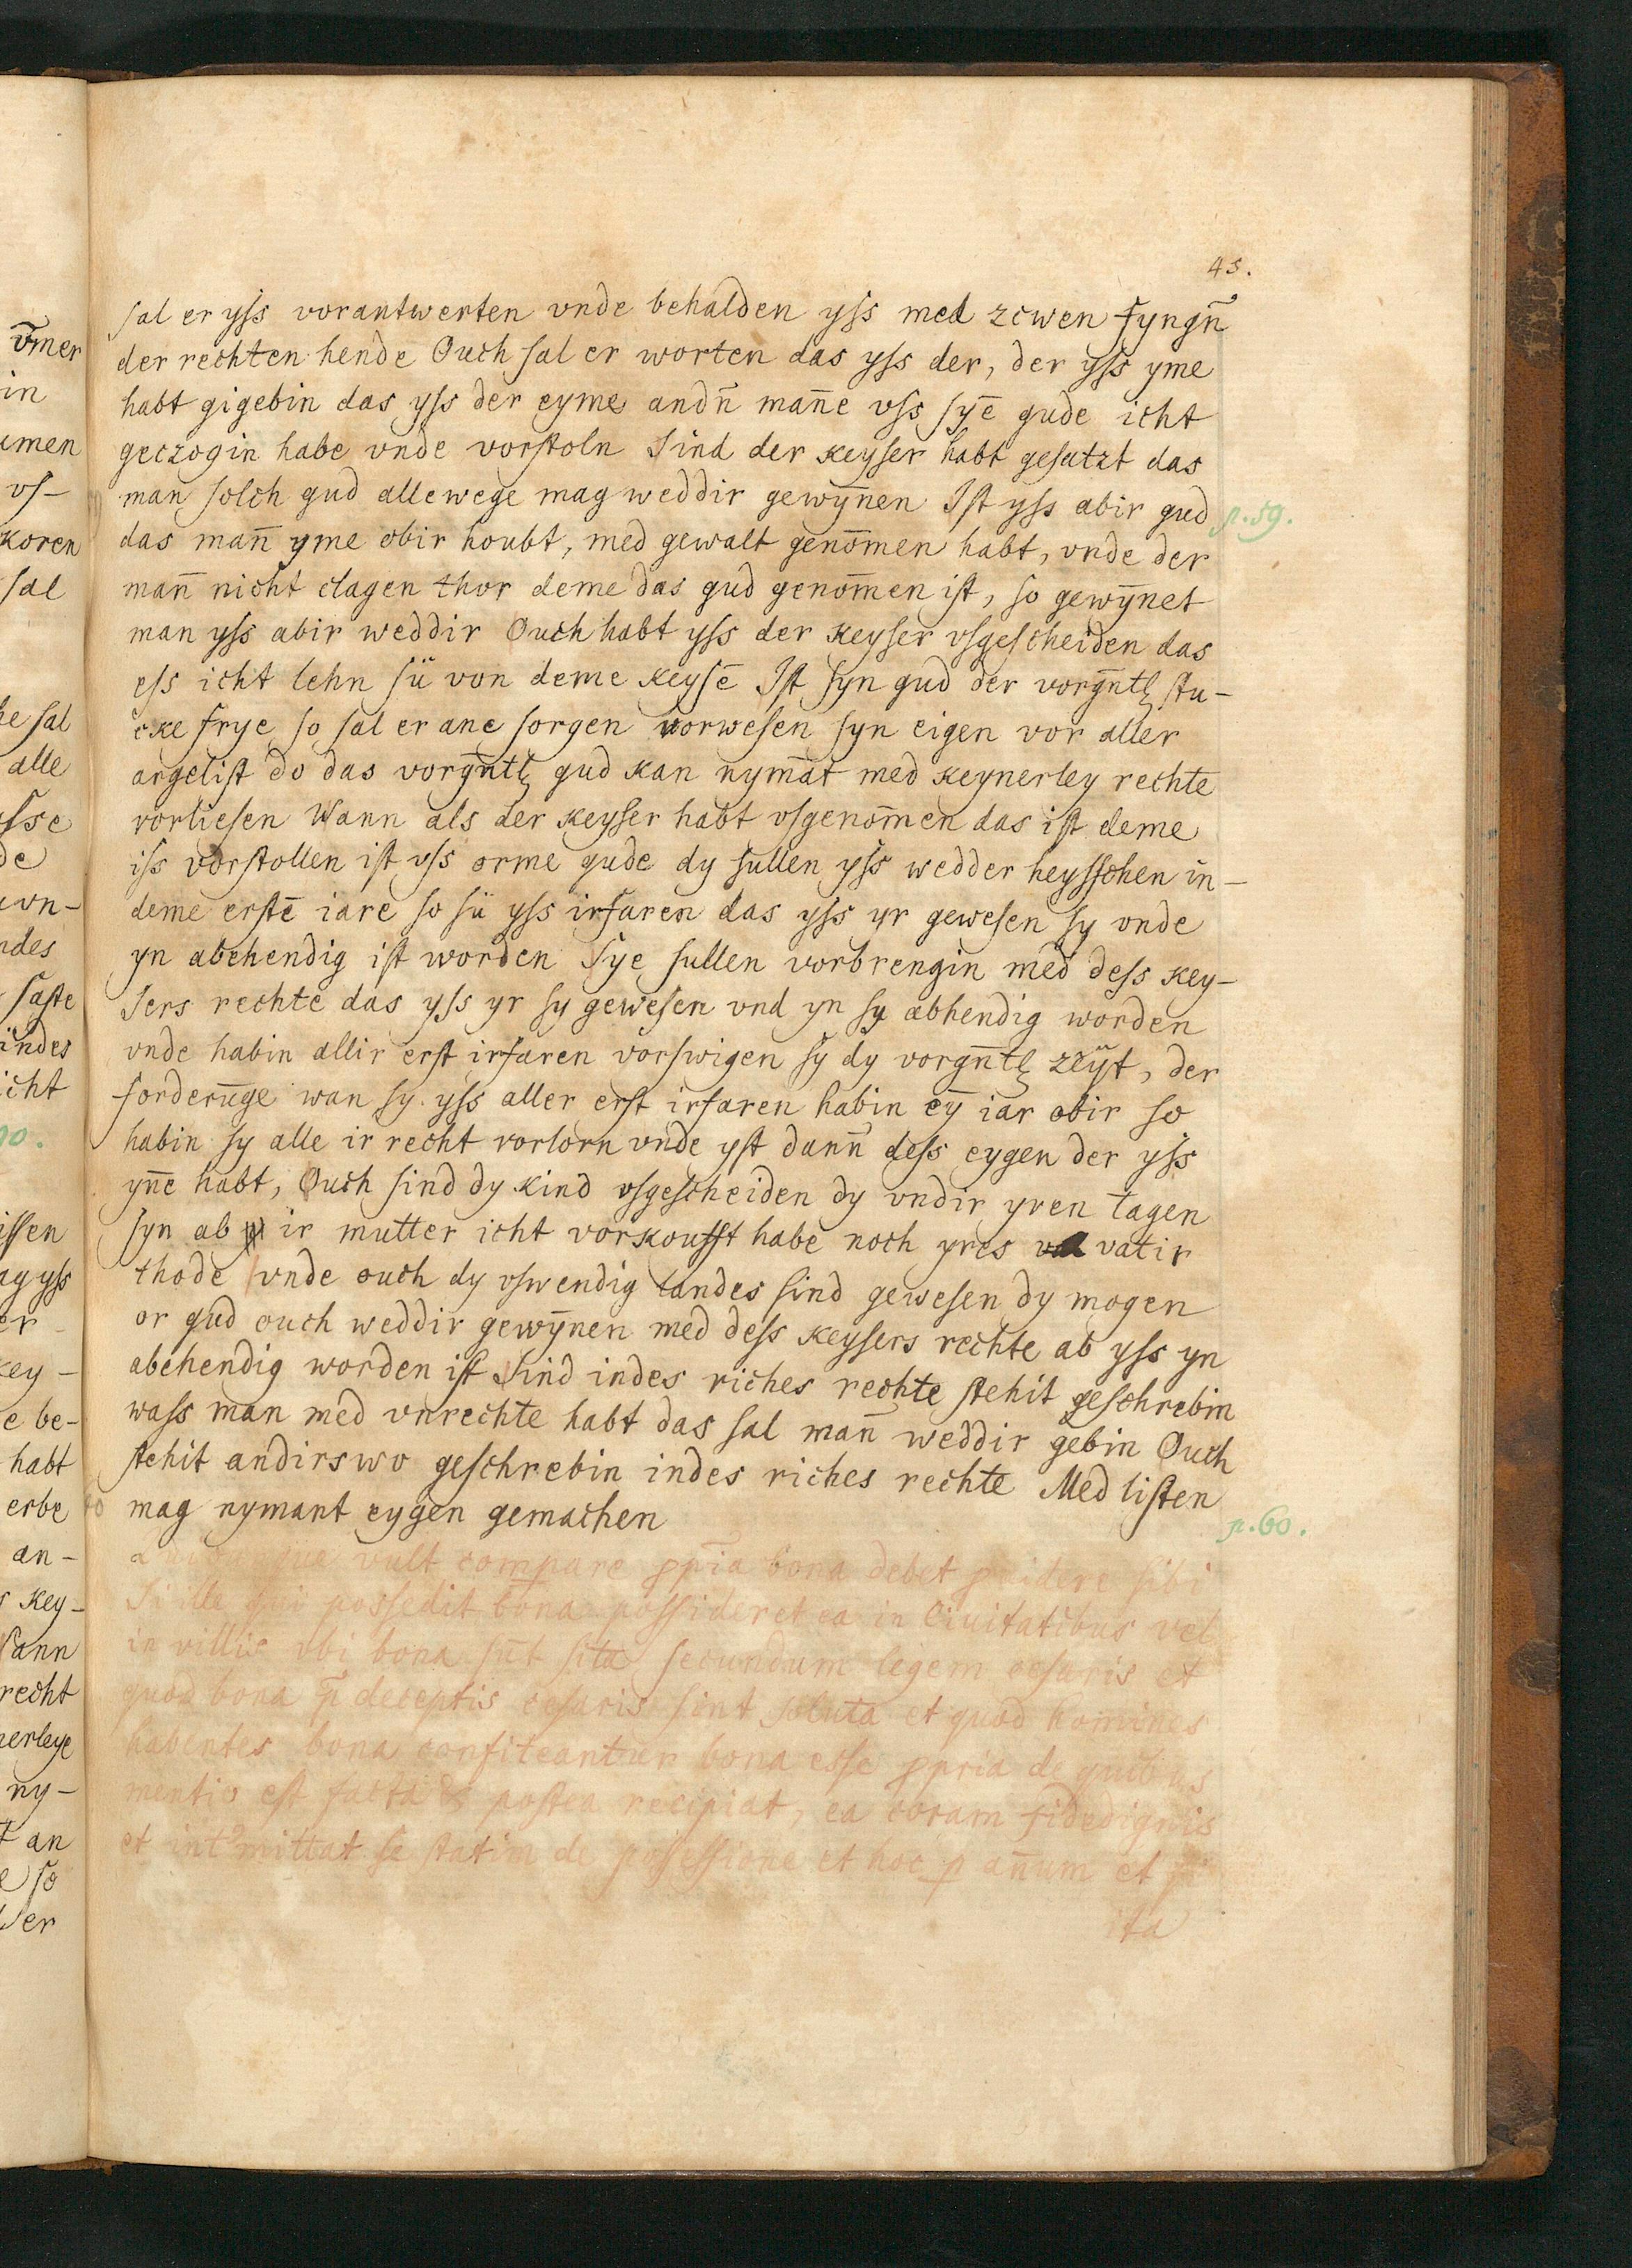 45.
sal er yss vorantwerten vnde behalden yss med zcwen fyngn̄
der rechten hende Ouch sal er worten das yss der, der yss yme
habt gigebin das yss der eyme andn̄ man̄e vss sȳe gude icht
geczogin habe vnde vorstoln Sind der keyser habt gesatzt das
man solch gud allewege mag weddir gewȳnen Ist yss abir gud
p. 59.
das man̄ yme obir houbt, med gewalt genom̄en habt, vnde der
man̄ nicht clagen thor deme das gud genom̄en ist, so gewȳnet
man yss abir weddir Ouch habt yss der keyser vsgescheiden das
ess icht lehn sü von deme keysē Ist syn gud der vorgn̄tl stu-
cke frye so sal er ane sorgen vorwesen syn eigen vor aller
argelist do das vorgn̄tl gud kan nymāt med keynerley rechte
vorliesen Wann als der keyser habt vsgenom̄en das ist deme
iss vorstollen ist vss orme gude dy sullen yss wedder heysschen in-
deme erstē iare so sü yss irfaren das yss yr gewesen sy vnde
yn abehendig ist worden Sye sullen vorbrengin med dess key-
sers rechte das yss yr sy gewesen vnd yn sy abhendig worden
vnde habin allir erst irfaren vorswigen sy dy vorgn̄tl zeÿt, der
forderūge wan sy yss aller erst irfaren habin eȳ iar obir so
habin sy alle ir recht vorlorn vnde yst dann̄ dess eygen der yss
yn̄e habt, Ouch sind dy kind vsgescheiden dy vndir yren tagen
syn ab ir mutter icht vorkoufft habe noch yres vatir
thode vnde ouch dy vswendig landes sind gewesen dy mogen
or gud ouch weddir gewȳnen med dess keysers rechte ab yss yn
abehendig worden ist Sind indes riches rechte stehit geschrebin
wass man med vnrechte habt das sal man̄ weddir gebin Ouch
stehit andirswo geschrebin indes riches rechte Med listen
mag nymant eygen gemachen
p. 60.
vult compare ppīa bona debet pvidere sibi
Si ille qui possedit bona possideret ea in Ciuitatibus vel
in villis vbi bona sūt sita secundum legem cesaris et
quod bona p̄ deceptis cesaris sint soluta et quod homines
habentes bona confiteantur bona esse ppria de quibus
mentio est facta & postea recipiat, ea coram fidedignis
et int'mittat se statim de possessione et hoc p an̄um et
ita